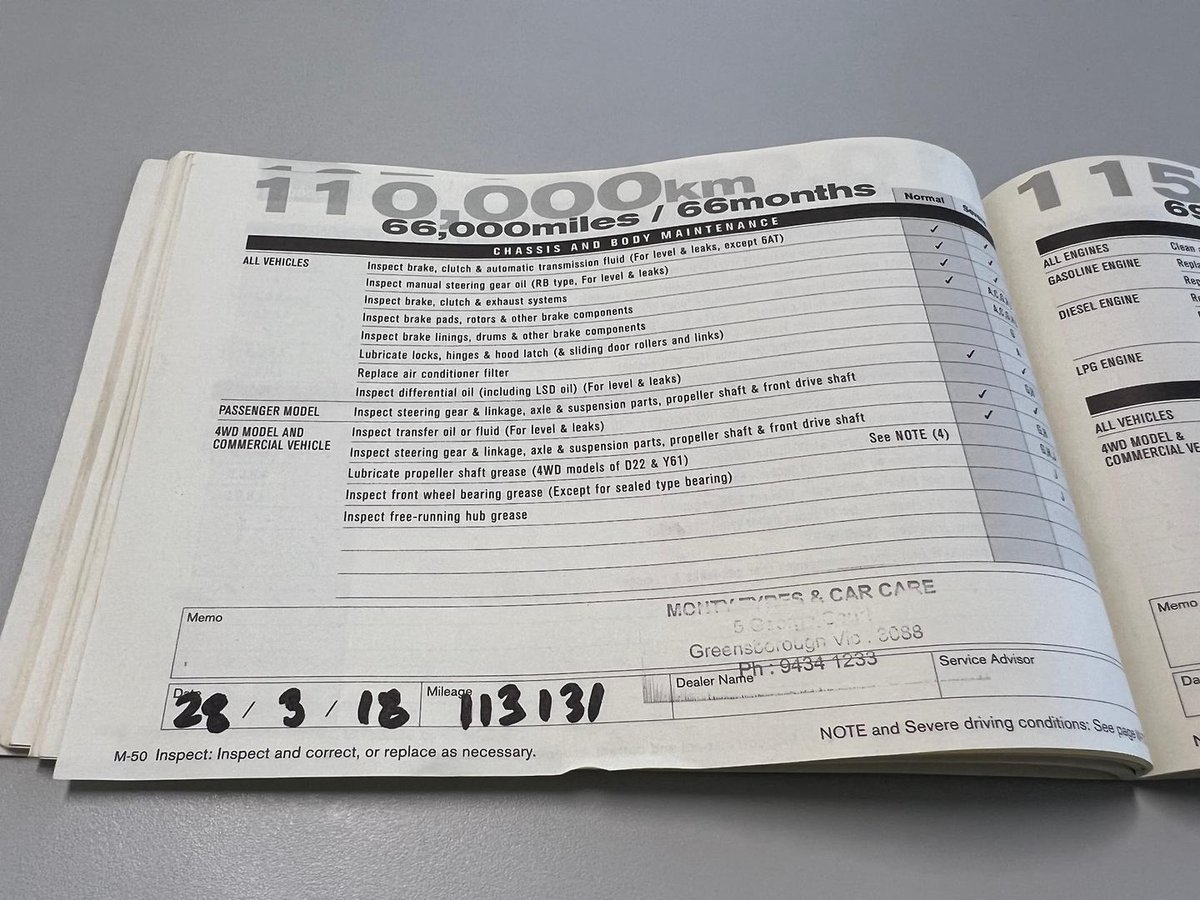 110,000km
66,000miles / 66months
Normal
CHASSIS AND BODY MAINTENANCE
ALL VEHICLES
Inspect brake, clutch & automatic transmission fluid (For level & leaks, except 6AT) ✓
Inspect manual steering gear oil (RB type, For level & leaks) ✓
Inspect brake, clutch & exhaust systems ✓
Inspect brake pads, rotors & other brake components
Inspect brake linings, drums & other brake components
Lubricate locks, hinges & hood latch (& sliding door rollers and links)
Replace air conditioner filter
Inspect differential oil (including LSD oil) (For level & leaks) ✓
PASSENGER MODEL Inspect steering gear & linkage, axle & suspension parts, propeller shaft & front drive shaft
4WD MODEL AND
COMMERCIAL VEHICLE
Inspect transfer oil or fluid (For level & leaks) ✓
Inspect steering gear & linkage, axle & suspension parts, propeller shaft & front drive shaft ✓
Lubricate propeller shaft grease (4WD models of D22 & Y61) See NOTE (4)
Inspect front wheel bearing grease (Except for sealed type bearing)
Inspect free-running hub grease
Memo
MONTY TYRES & CAR CARE
Greensborough Vic. 3088
Ph : 9434 1233
Date 28 / 3 / 18
Mileage 113131
Dealer Name
Service Advisor
M-50 Inspect: Inspect and correct, or replace as necessary.
NOTE and Severe driving conditions: See page
115
ALL ENGINES
GASOLINE ENGINE
DIESEL ENGINE
LPG ENGINE
ALL VEHICLES
4WD MODEL &
Memo